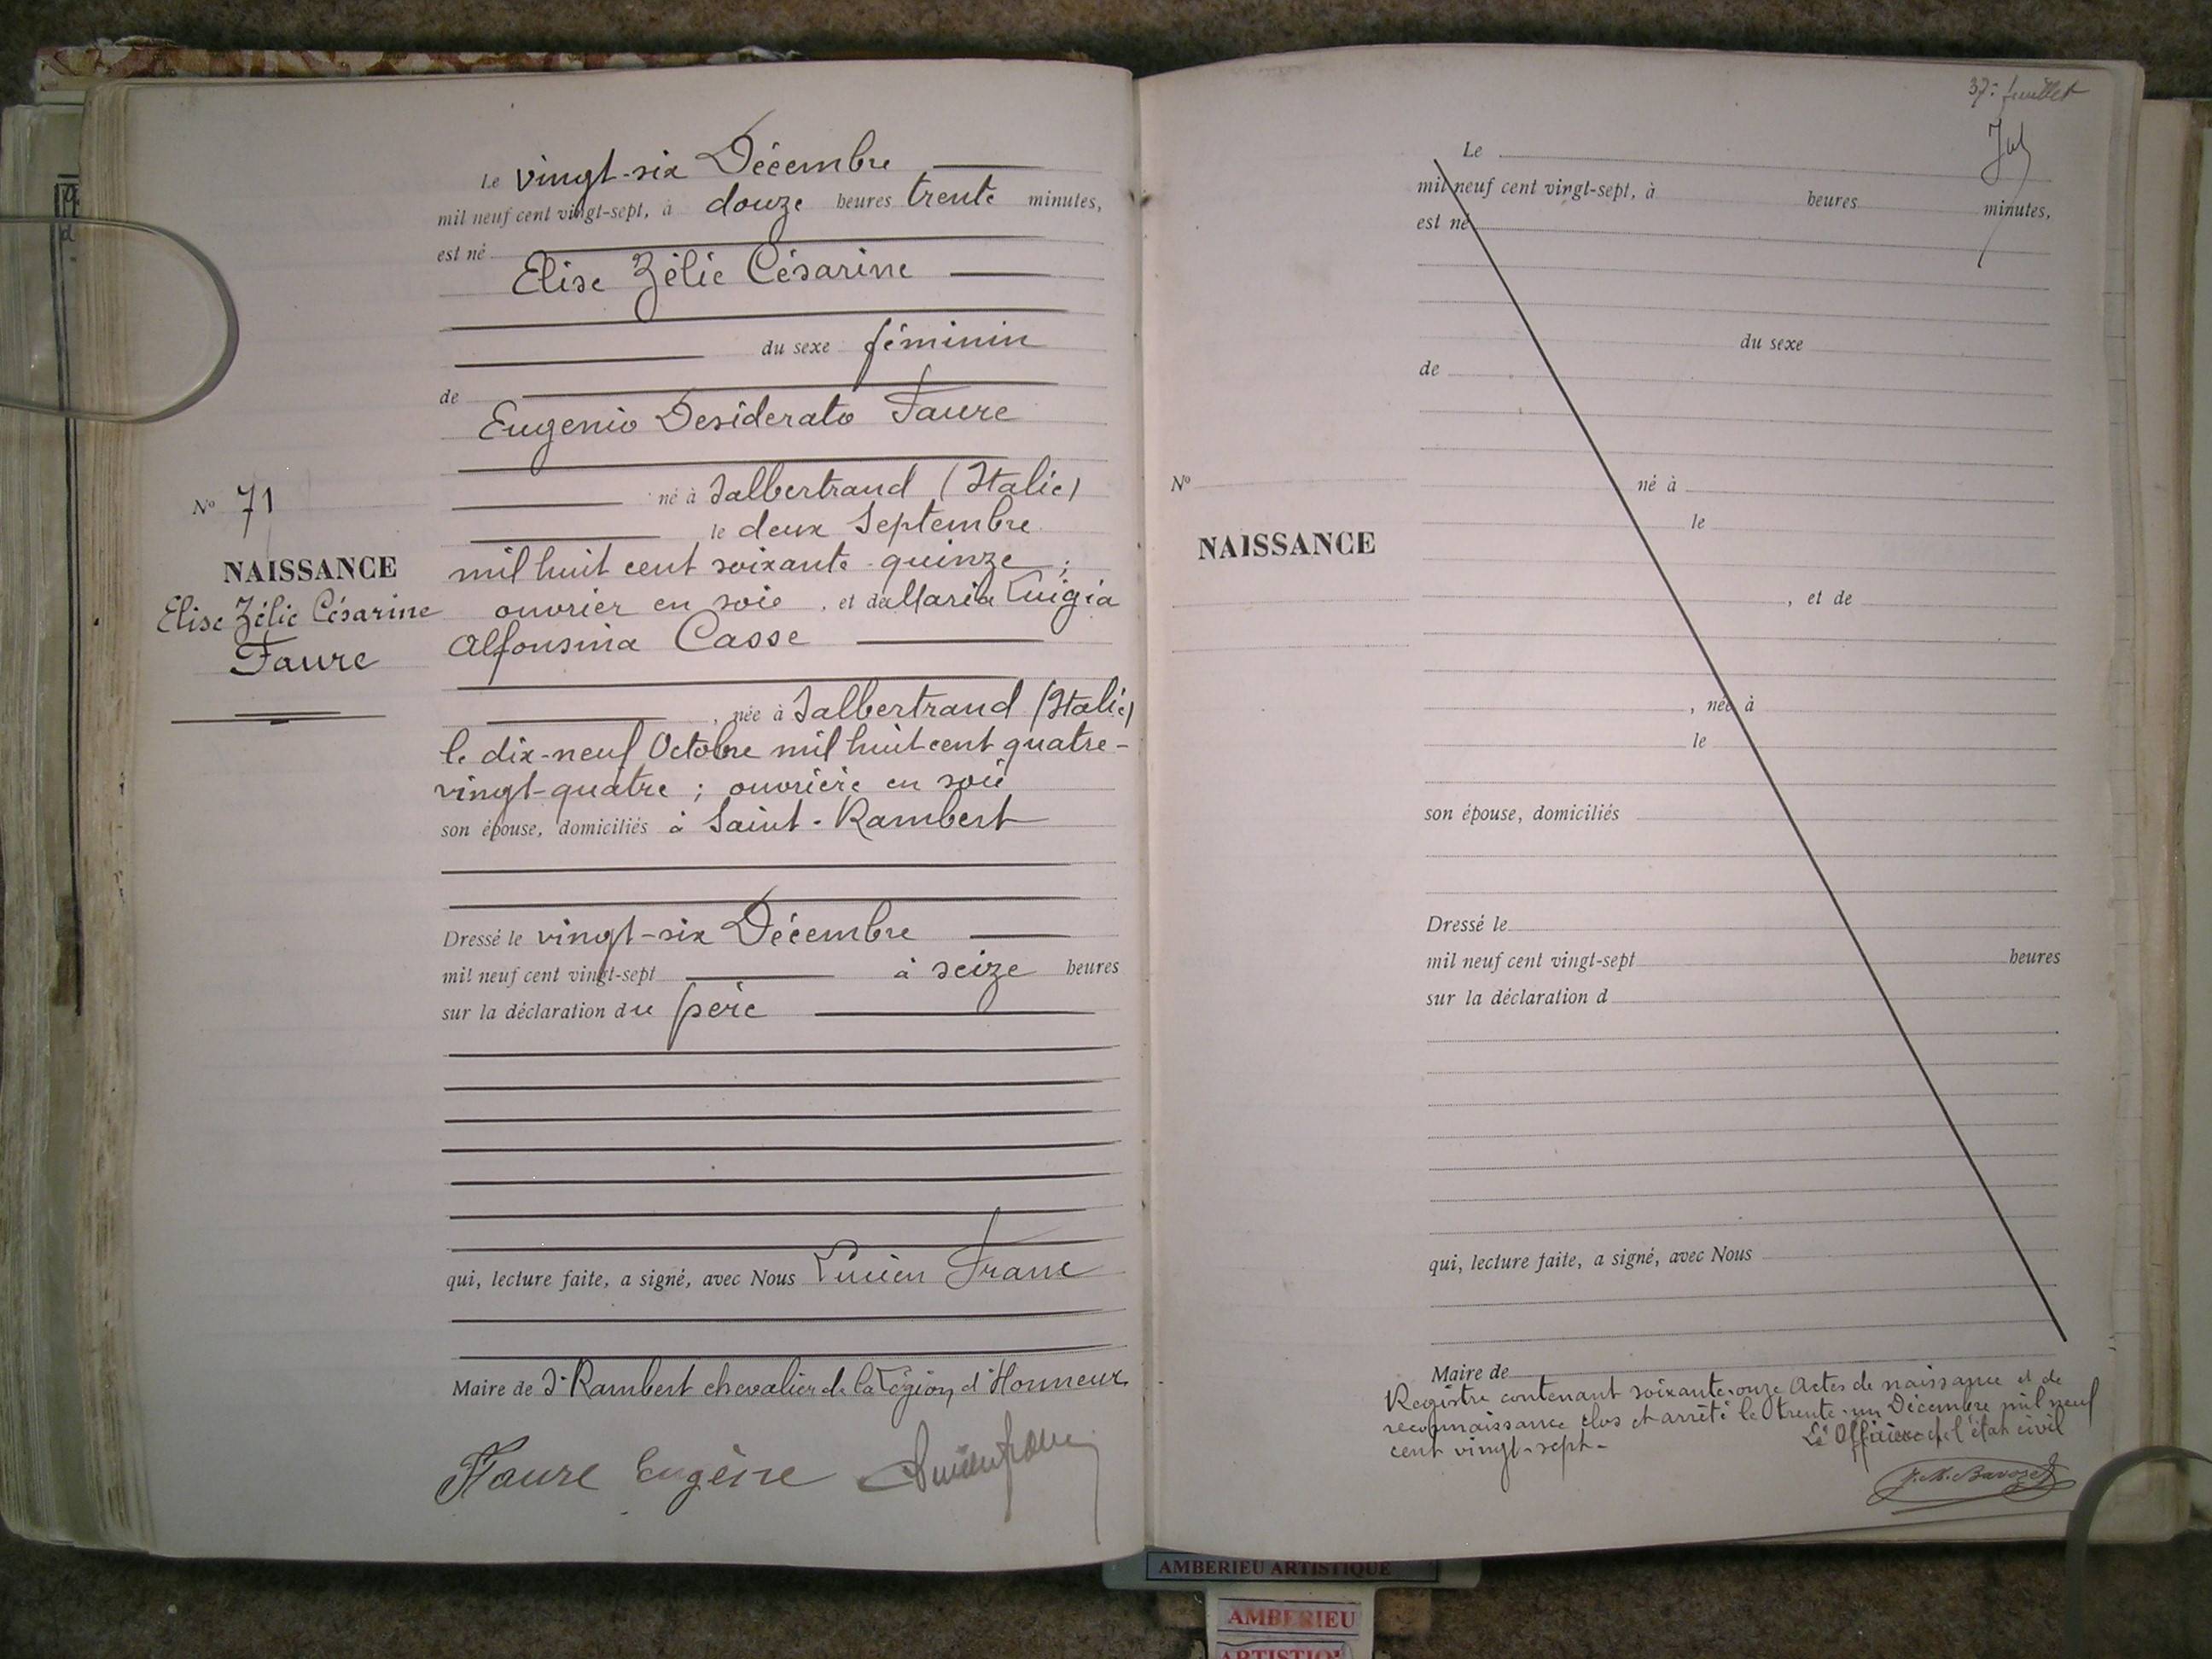 Le vingt-six Décembre
mil neuf cent vingt-sept, à douze heures trente minutes,
est né
Elise Zélie Césarine
du sexe féminin
de
Eugenio Desiderato Faure
né à Salbertrand (Italie)
le deux Septembre
mil huit cent soixante-quinze ;
ouvrier en soie, et de Maria Luigia
Alfonsina Casse
, née à Salbertrand (Italie)
le dix-neuf Octobre mil huit cent quatre-
vingt-quatre ; ouvrière en soie
son épouse, domiciliés à Saint-Rambert
Dressé le vingt-six Décembre
mil neuf cent vingt-sept à seize heures
sur la déclaration du père
qui, lecture faite, a signé, avec Nous Lucien Franc
Maire de St Rambert chevalier de la Légion d'Honneur
Faure Eugène Lucien Franc
No 71
NAISSANCE
Elise Zélie Césarine
Faure
37e feuillet
Le
mil neuf cent vingt-sept, à heures minutes,
est né
du sexe
de
né à
le
, et de
, née à
le
son épouse, domiciliés
Dressé le
mil neuf cent vingt-sept heures
sur la déclaration d
qui, lecture faite, a signé, avec Nous
Maire de
No
NAISSANCE
Registre contenant soixante-onze Actes de naissance et de
reconnaissance clos et arrêté le trente-un Décembre mil neuf
cent vingt-sept- Le Officier de l'état civil
AMBERIEU ARTISTIQUE
AMBERIEU